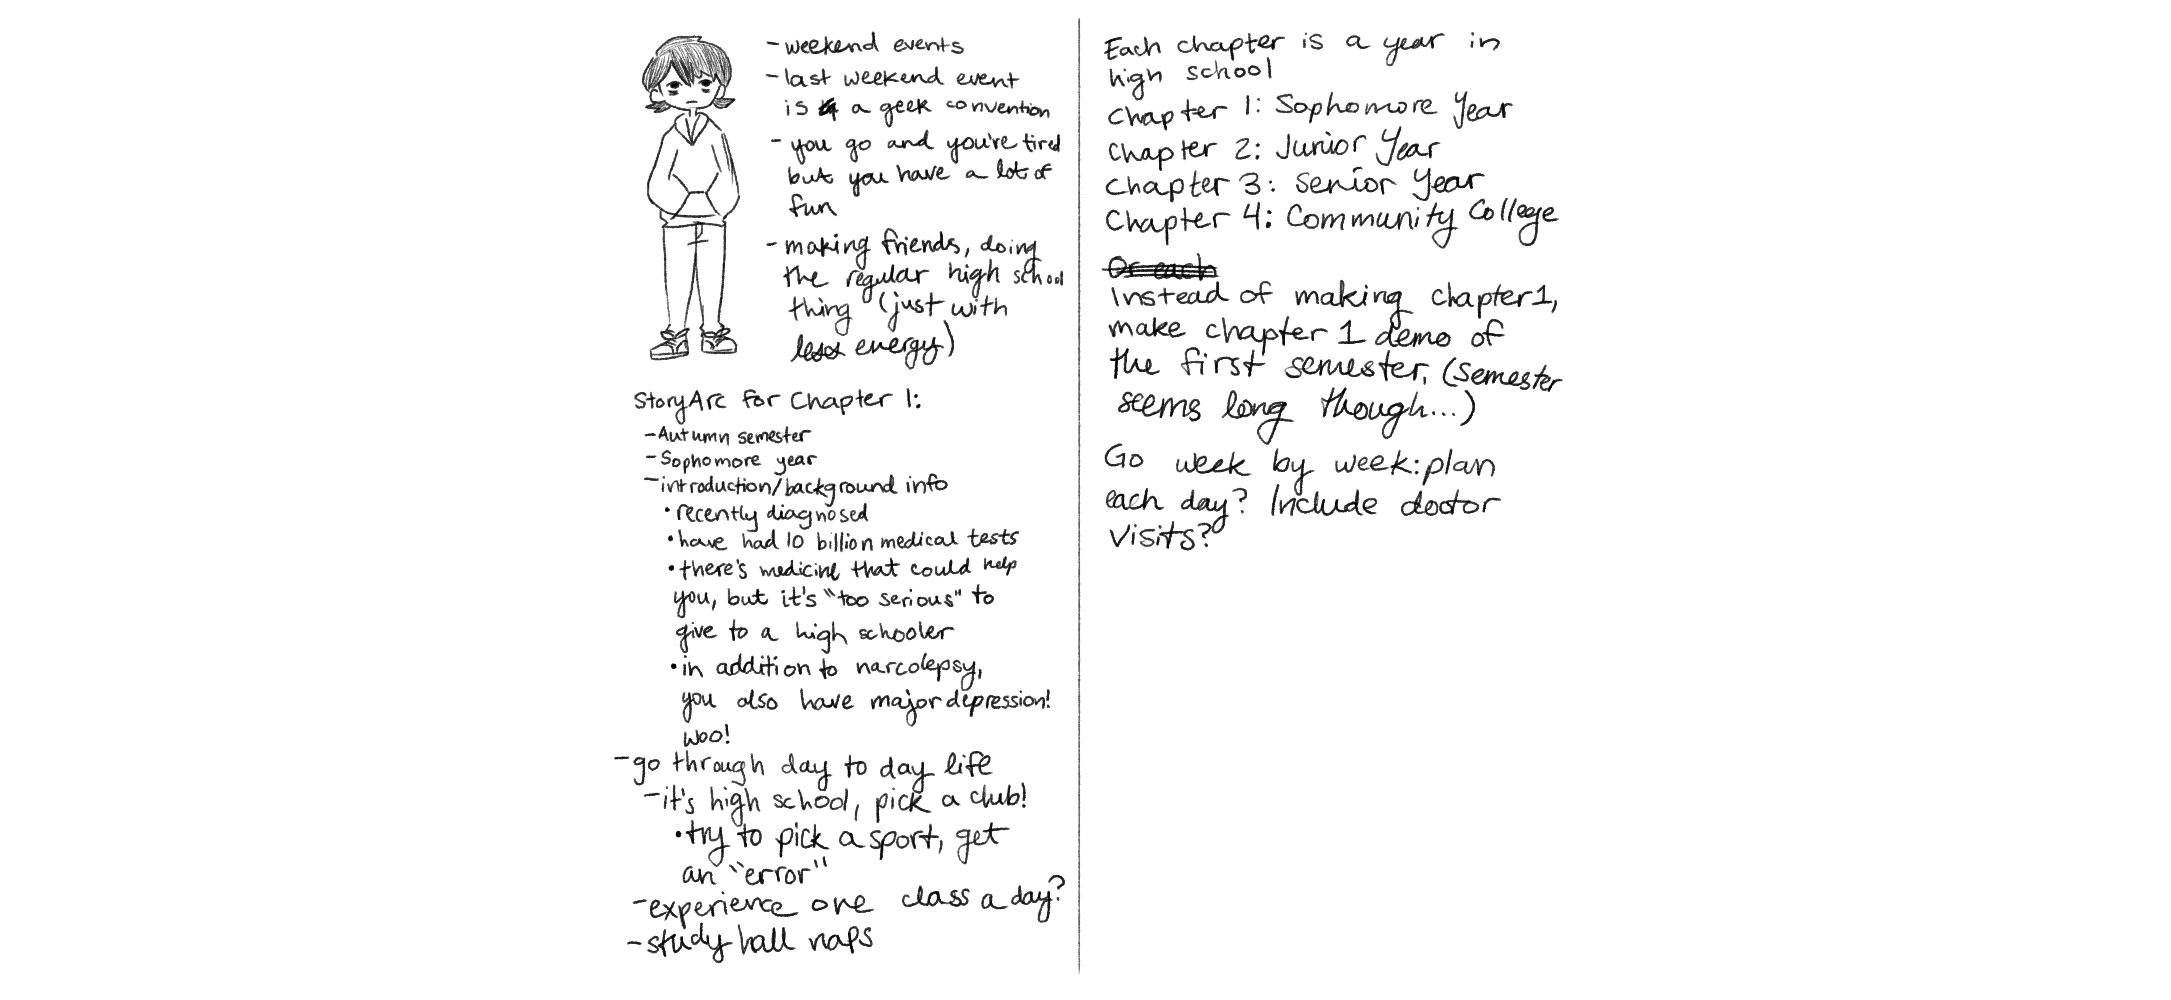 - weekend events
- last weekend event
is a geek convention
- you go and you're tired
but you have a lot of
fun
- making friends, doing
the regular high school
thing (just with
less energy)
Story Arc for Chapter 1:
- Autumn semester
- Sophomore year
- introduction/background info
• recently diagnosed
• have had 10 billion medical tests
• there's medicine that could help
you, but it's "too serious" to
give to a high schooler
• in addition to narcolepsy,
you also have major depression!
woo!
- go through day to day life
- it's high school, pick a club!
• try to pick a sport, get
an "error"
- experience one class a day?
- study hall naps
Each chapter is a year in
high school
Chapter 1: Sophomore Year
Chapter 2: Junior Year
Chapter 3: Senior Year
Chapter 4: Community College
Or each
Instead of making chapter 1,
make chapter 1 demo of
the first semester. (semester
seems long though...)
Go week by week: plan
each day? Include doctor
visits?